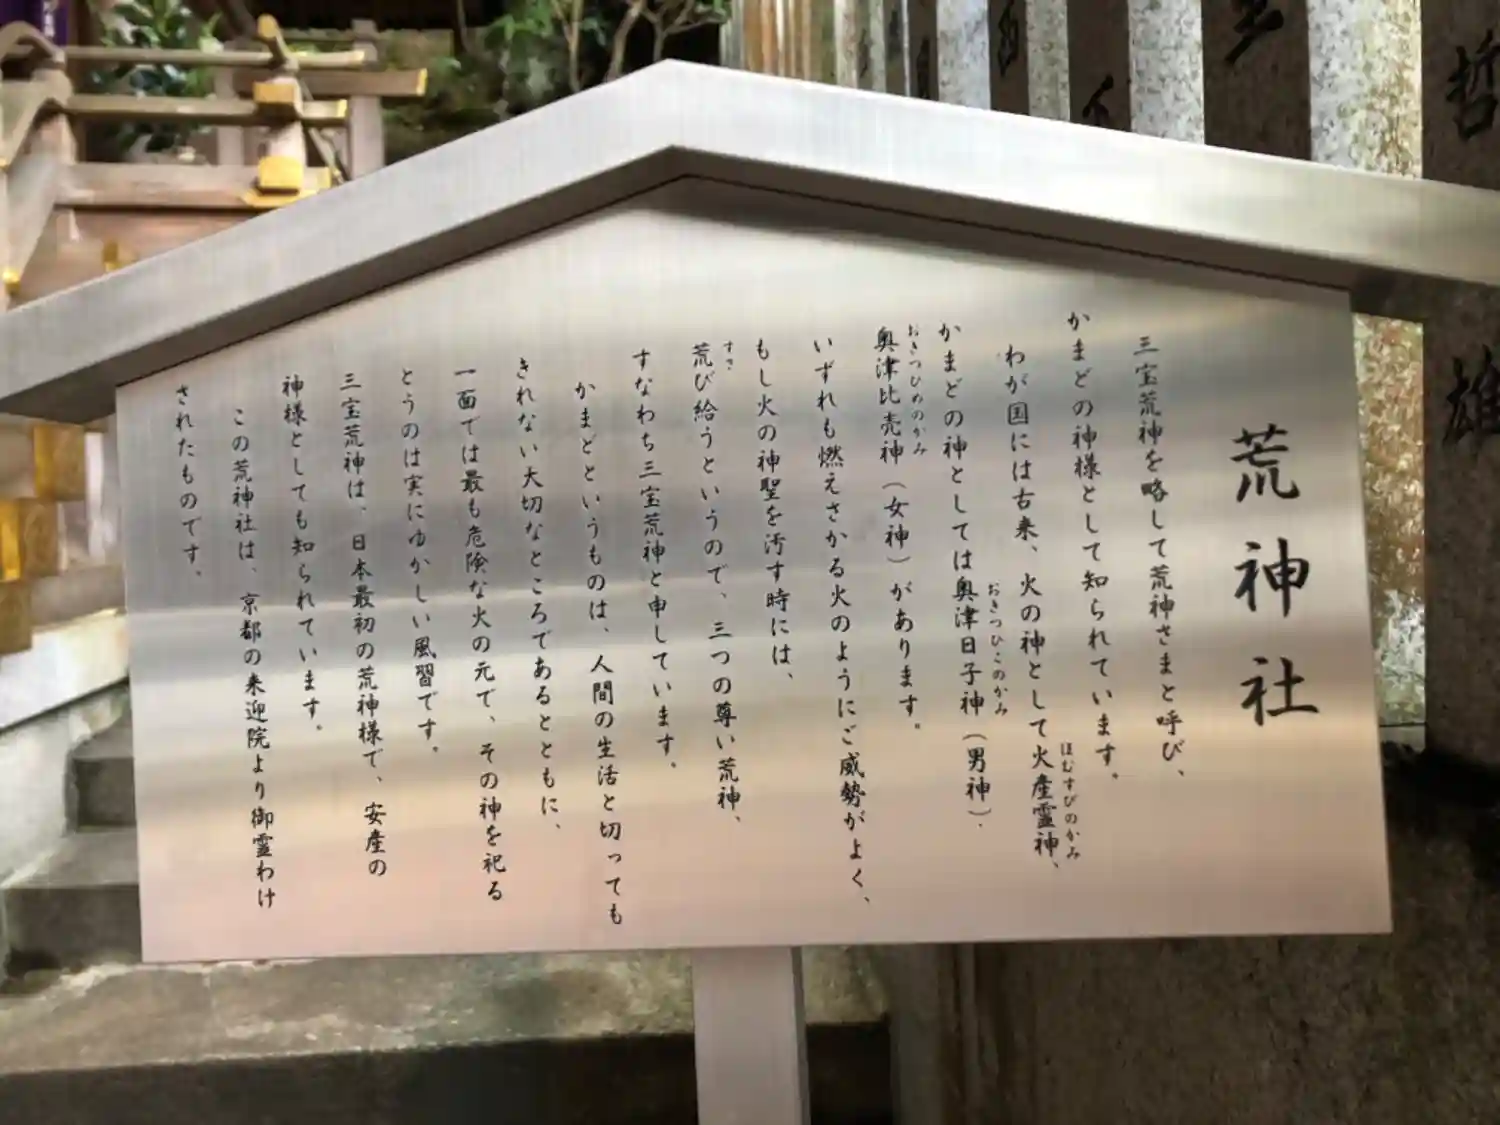 荒神社
三宝荒神を略して荒神さまと呼び、
かまどの神様として知られています。
わが国には古来、火の神として火産霊神、
ほむすびのかみ
かまどの神としては奥津日子神（男神）.
おきつひこのかみ
奥津比売神（女神）があります。
おきつひめのかみ
いずれも燃えさかる火のようにご威勢がよく、
もし火の神聖を汚す時には、
荒び給うというので、三つの尊い荒神、
すさ
すなわち三宝荒神と申しています。
かまどというものは、人間の生活と切っても
きれない大切なところであるとともに、
一面では最も危険な火の元で、その神を祀る
とうのは実にゆかしい風習です。
三宝荒神は、日本最初の荒神様で、安産の
神様としても知られています。
この荒神社は、京都の来迎院より御霊わけ
されたものです。
哲雄